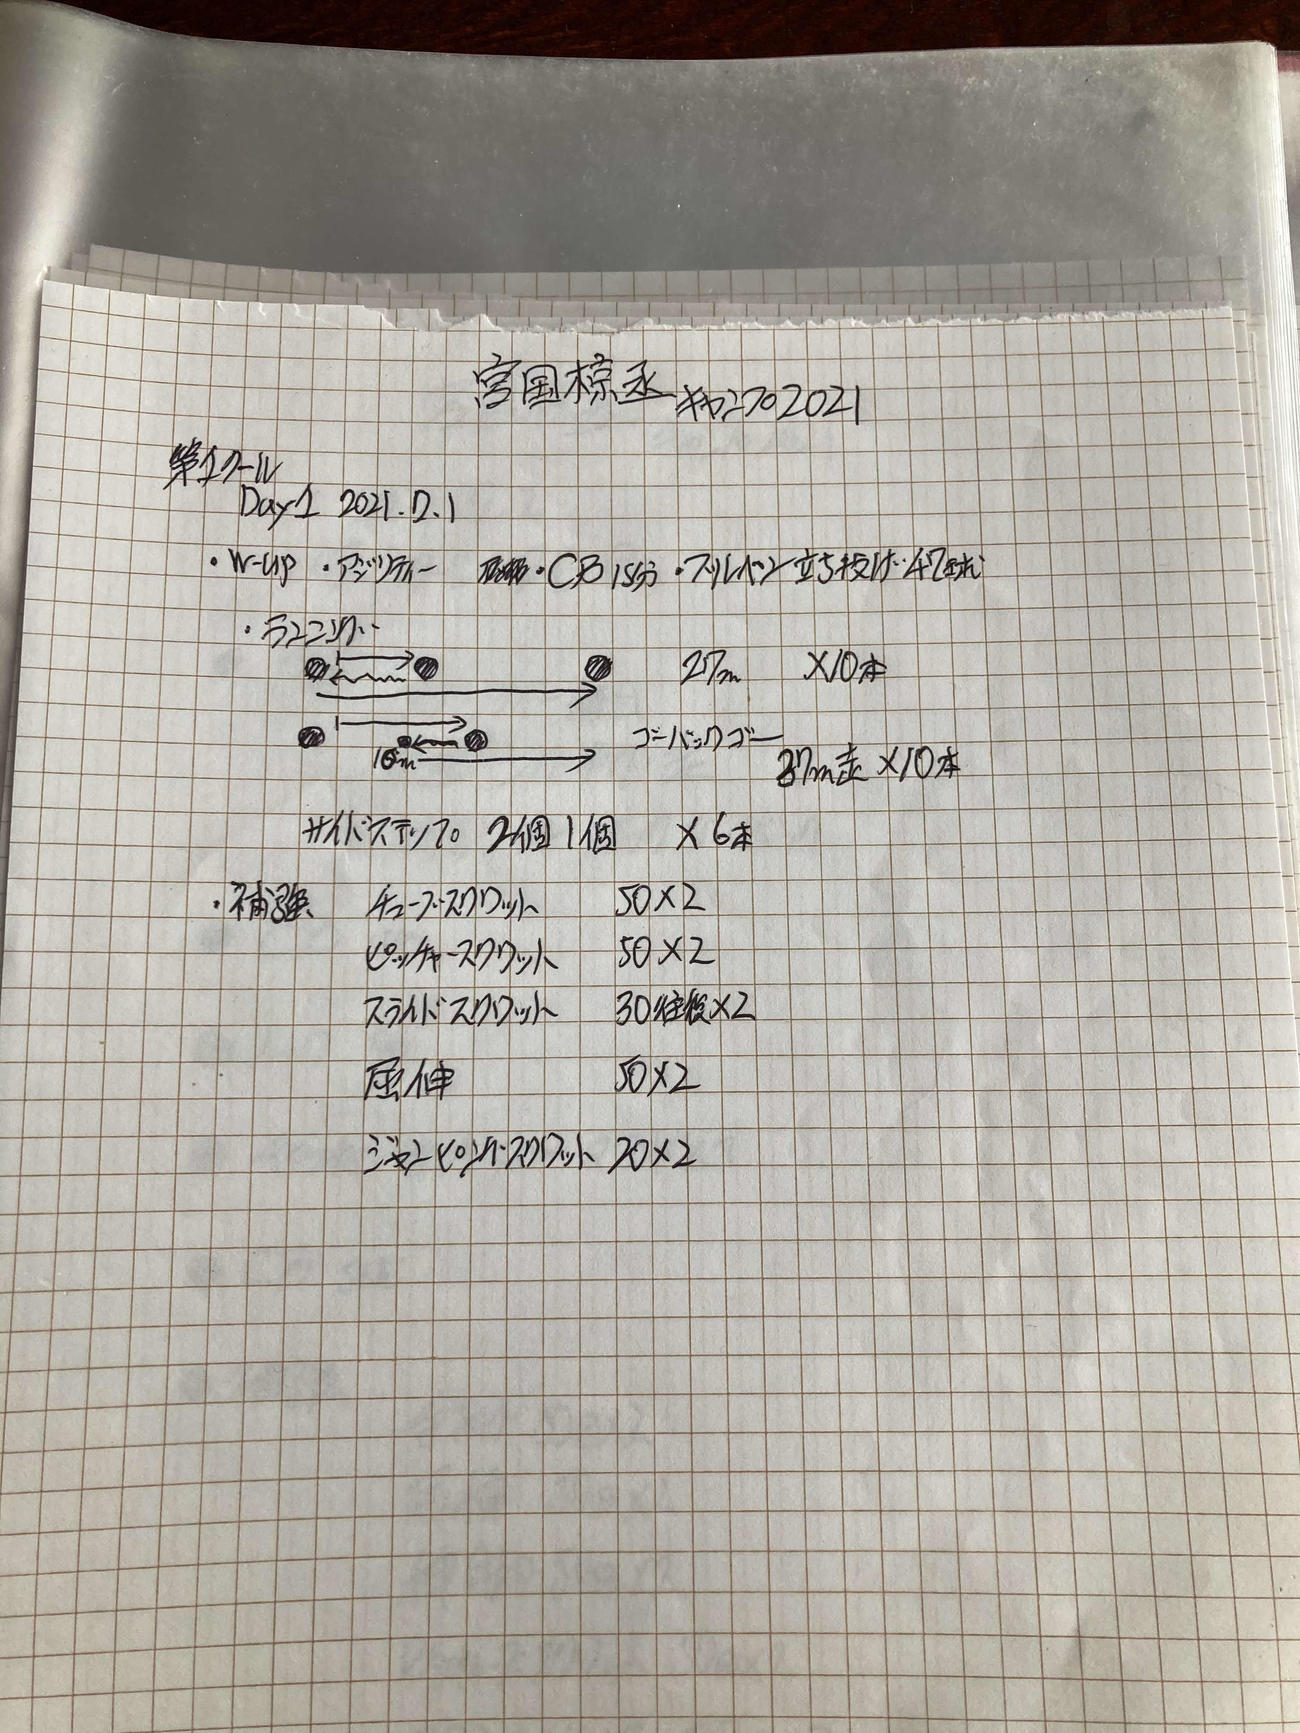 宮国椋丞キャンプ2021
第1クール
Day1 2021.2.1
・W-up ・アジリティー ・CB 15分 ・ブルペン 立ち投げ 47球
・ランニング
27m ×10本
ゴーバックゴー
10m
27m走 ×10本
サイドステップ 2個1個 ×6本
・補強 チューブスクワット 50×2
ピッチャースクワット 50×2
スライドスクワット 30往復×2
屈伸 50×2
ジャンピングスクワット 20×2